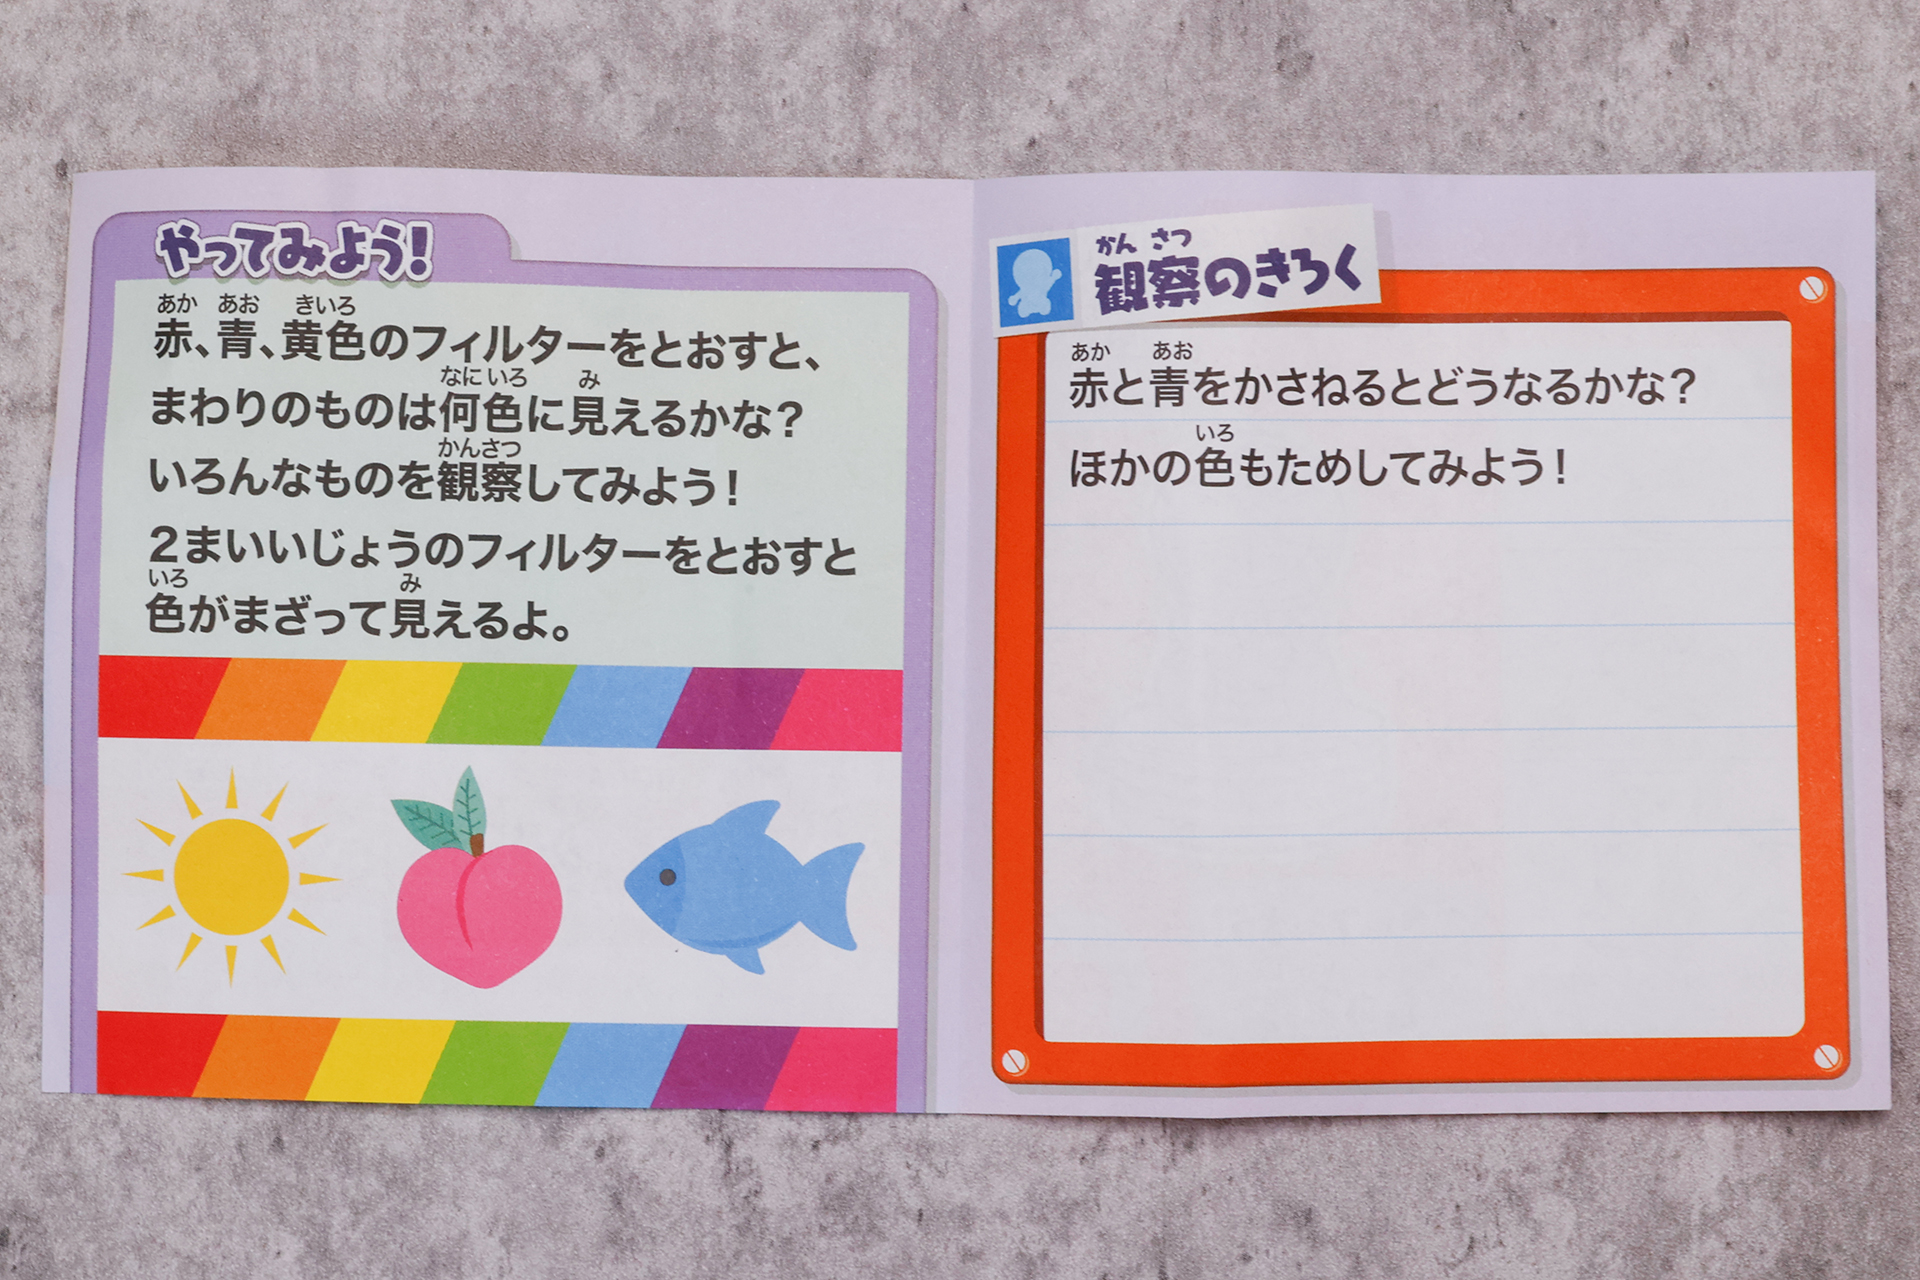 やってみよう!
あか あお きいろ
赤、青、黄色のフィルターをとおすと、
なにいろ み
まわりのものは何色に見えるかな?
かんさつ
いろんなものを観察してみよう!
2まいいじょうのフィルターをとおすと
いろ み
色がまざって見えるよ。
かん さつ
観察のきろく
あか あお
赤と青をかさねるとどうなるかな?
いろ
ほかの色もためしてみよう!